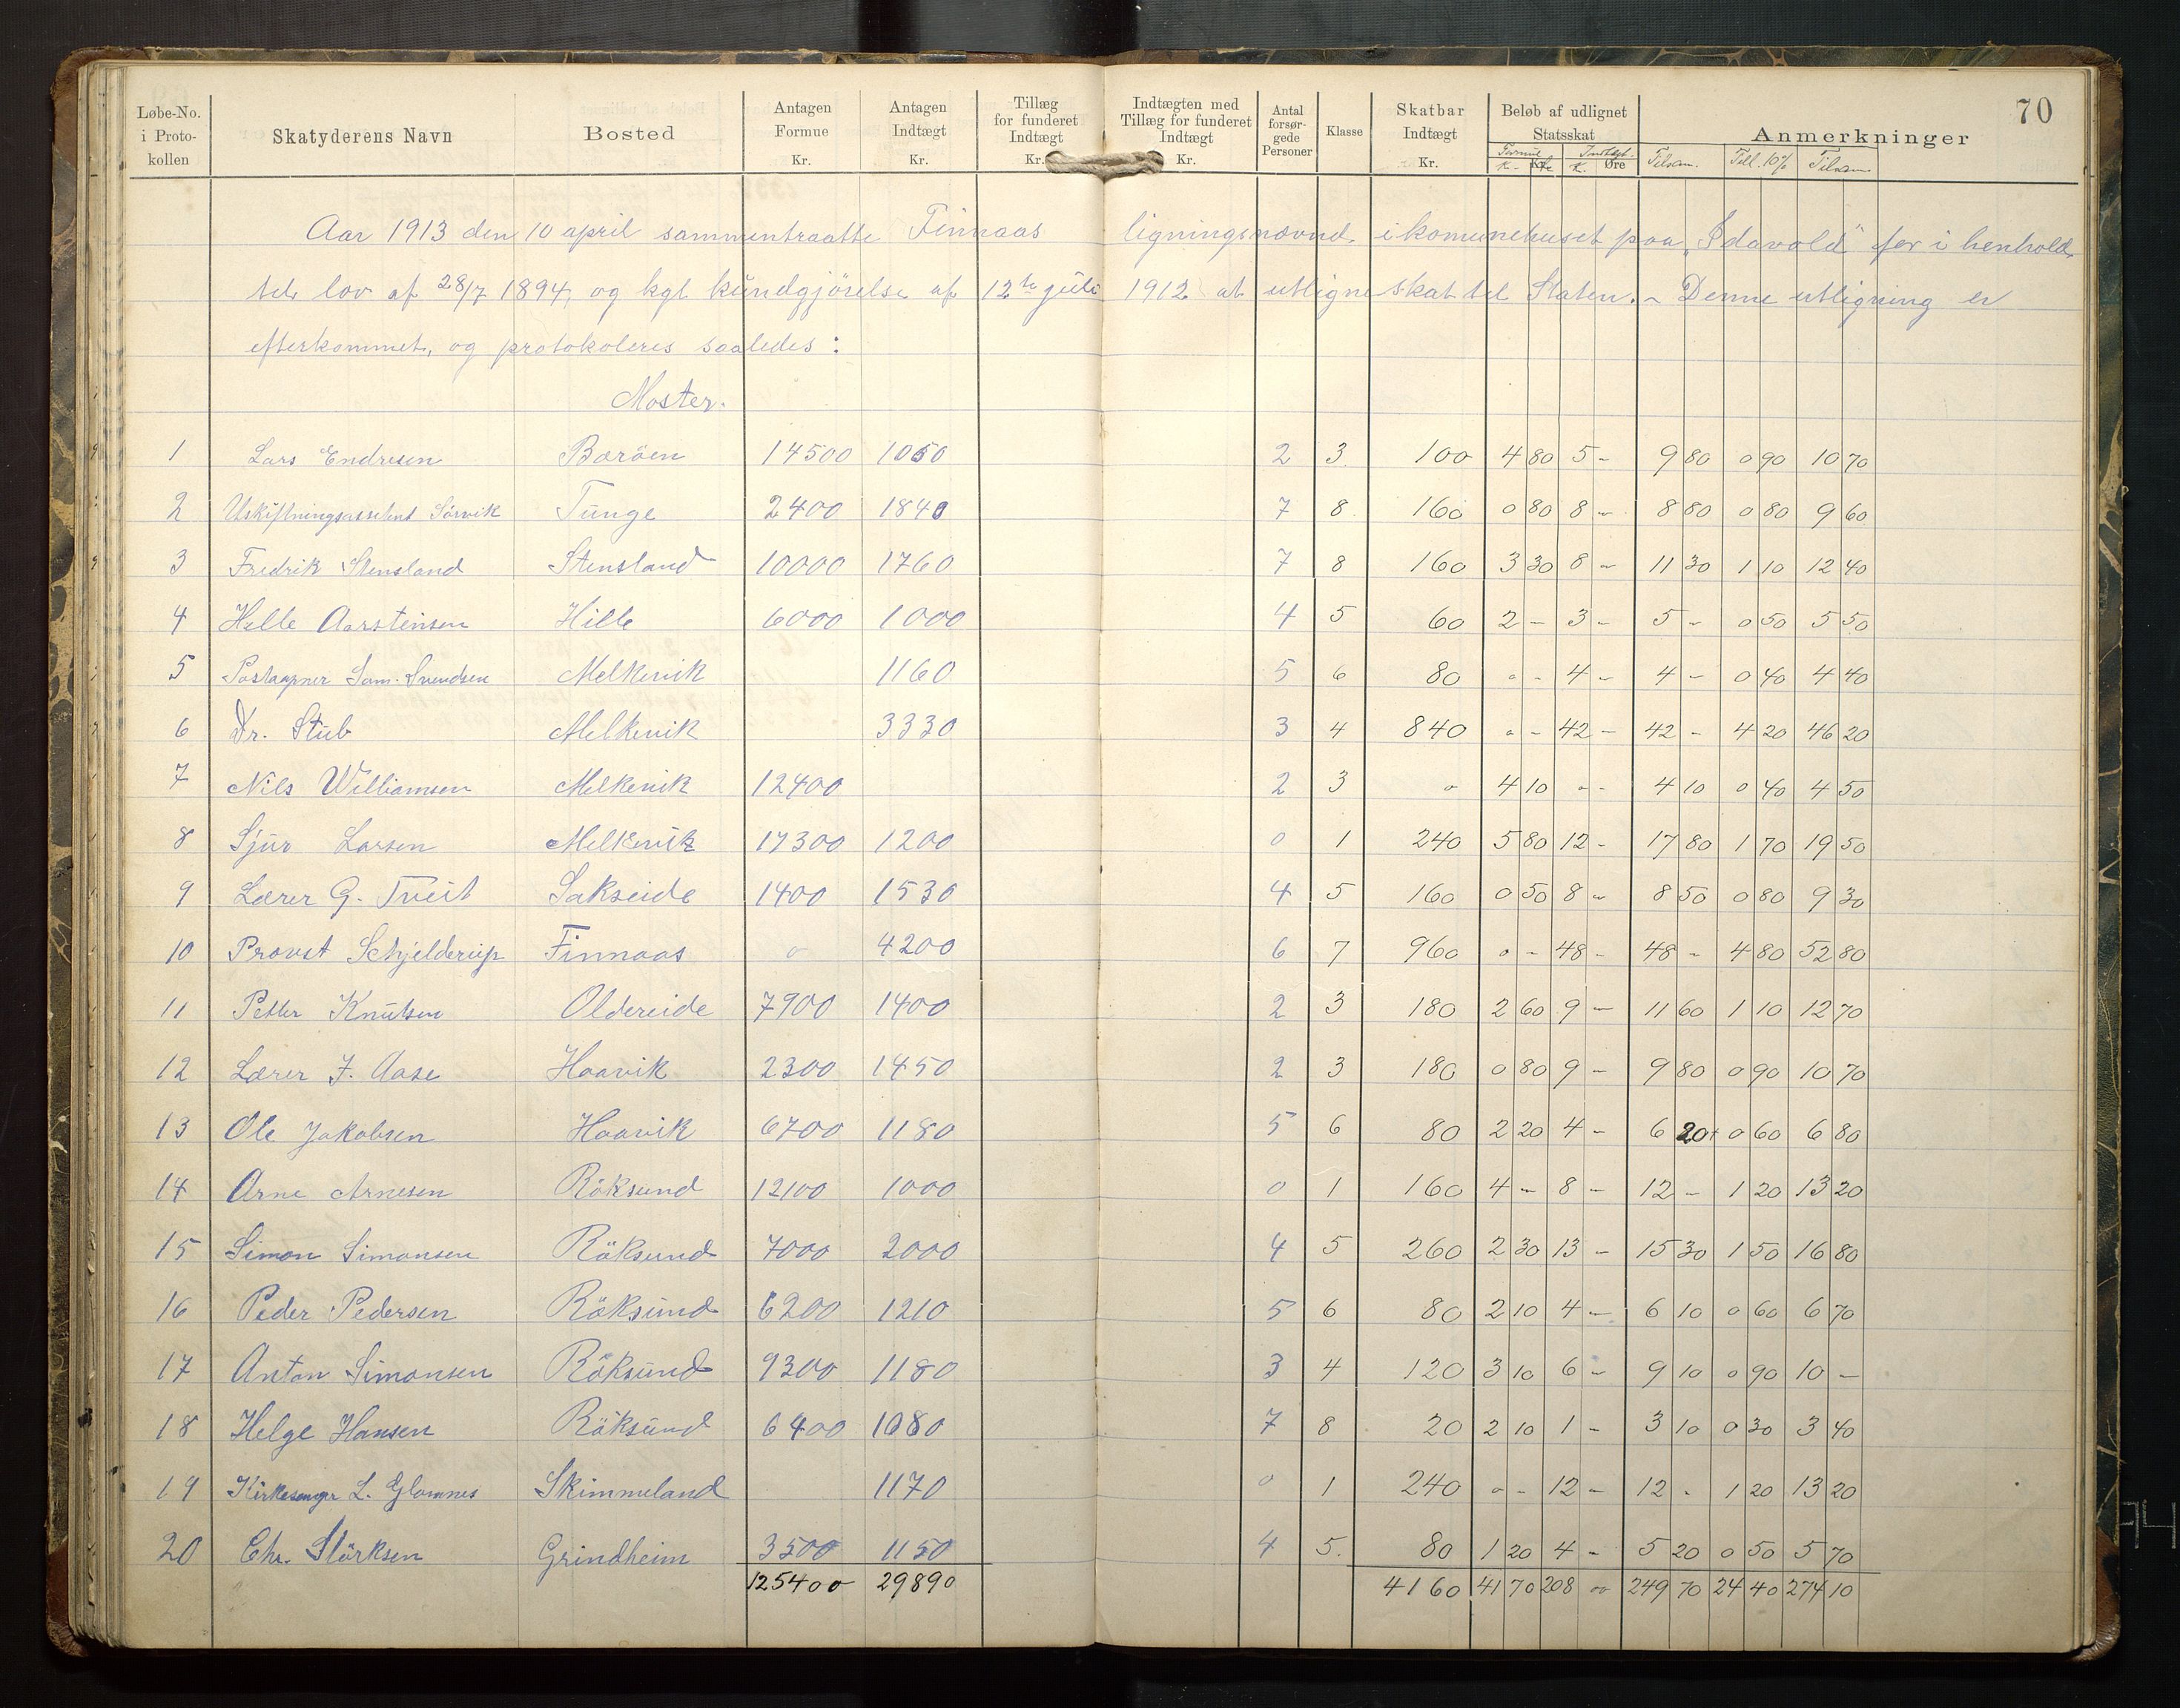 70
Løbe-No. i Protokollen | Skatyderens Navn | Bosted | Antagen Formue Kr. | Antagen Indtægt Kr. | Tillæg for funderet Indtægt Kr. | Indtægten med Tillæg for funderet Indtægt Kr. | Antal forsørgede Personer | Klasse | Skatbar Indtægt Kr. | Beløb af udlignet Statsskat Formue K. Indtægt. K. Øre | Anmerkninger Tilsam. Till. 10% Tilsam
Aar 1913 den 10 april sammentraatte Finnaas ligningsnævnd i komunehuset paa "Idavold" for i henhold
til lov af 28/7 1894, og kgl kundgjörelse af 12te juli 1912 at utligne skat til Staten. - Denne utligning er
efterkommet, og protokoleres saaledes:
Moster.
1 Lars Endresen Baröen 14500 1050 2 3 100 4 80 5 - 9 80 0 90 10 70
2 Uskiftningsassistent Sörvik Tunge 2400 1840 7 8 160 0 80 8 - 8 80 0 80 9 60
3 Fredrik Stensland Stensland 10000 1760 7 8 160 3 30 8 - 11 30 1 10 12 40
4 Helle Aarstensen Hille 6000 1000 4 5 60 2 - 3 - 5 - 0 50 5 50
5 Postaapner Sam. Svendsen Melkevik 1160 5 6 80 0 - 4 - 4 - 0 40 4 40
6 Dr. Stub Melkevik 3330 3 4 840 0 - 42 - 42 - 4 20 46 20
7 Nils Williamsen Melkevik 12400 2 3 0 4 10 0 - 4 10 0 40 4 50
8 Sjur Larsen Melkevik 17300 1200 0 1 240 5 80 12 - 17 80 1 70 19 50
9 Lærer G. Tveit Sakseide 1400 1530 4 5 160 0 50 8 - 8 50 0 80 9 30
10 Provst Schjelderup Finnaas 0 4200 6 7 960 0 - 48 - 48 - 4 80 52 80
11 Petter Knutsen Oldereide 7900 1400 2 3 180 2 60 9 - 11 60 1 10 12 70
12 Lærer J. Aase Haavik 2300 1450 2 3 180 0 80 9 - 9 80 0 90 10 70
13 Ole Jakobsen Haavik 6700 1180 5 6 80 2 20 4 - 6 20 + 0 60 6 80
14 Arne Arnesen Röksund 12100 1000 0 1 160 4 - 8 - 12 - 1 20 13 20
15 Simon Simonsen Röksund 7000 2000 4 5 260 2 30 13 - 15 30 1 50 16 80
16 Peder Pedersen Röksund 6200 1210 5 6 80 2 10 4 - 6 10 0 60 6 70
17 Anton Simonsen Röksund 9300 1180 3 4 120 3 10 6 - 9 10 0 90 10 -
18 Helge Hansen Röksund 6400 1080 7 8 20 2 10 1 - 3 10 0 30 3 40
19 Kirkesanger L. Glomnes Skimmeland 1170 0 1 240 0 - 12 - 12 - 1 20 13 20
20 Chr. Störksen Grindheim 3500 1150 4 5. 80 1 20 4 - 5 20 0 50 5 70
125400 29890 4160 41 70 208 00 249 70 24 40 274 10